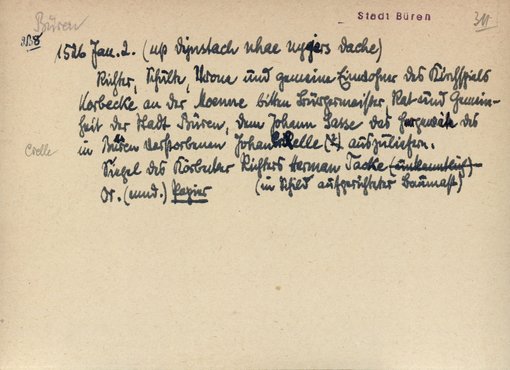 Büren
Stadt Büren
1526 Jan. 2. (up dynstach nhae nyjers dache)
Richter, Schulte, Vrone und gemeine Einwohner des Kirchspiels
Korbecke an der Moenne bitten Bürgermeister, Rat und Gemein-
heit der Stadt Büren, dem Johann Sasse das Hergewäte des
in Büren verstorbenen Johan Crelle (?) auszuliefern.
Crelle
Siegel des Körbecker Richters Herman Tacke (unkenntlich)
Or. (mnd.) Papier (im Schild aufgerichteter Baumast)